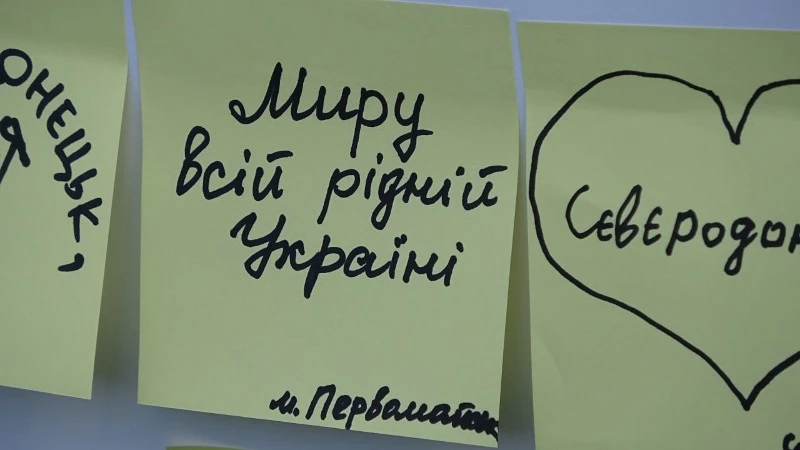 ОНЕЦЬК,
Я
Миру
всій рідній
Україні
м. Первомайськ
Сєвєродон